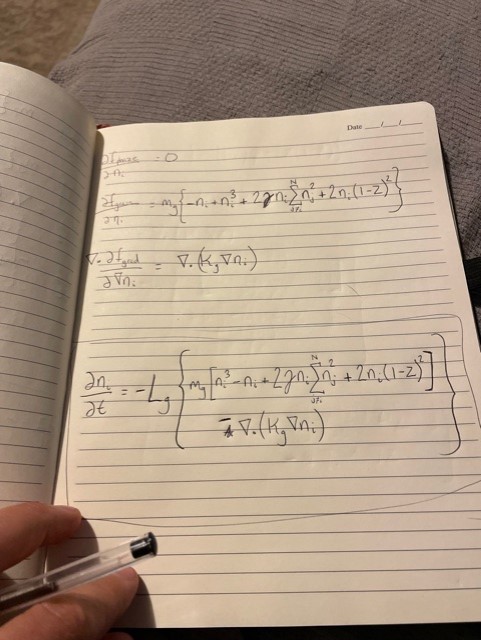 Date __/__/__
∂f/∂n_i = 0
∂f/∂n_i = m_g{-n_i + n_i^3 + 2γn_i Σ_{j≠i}^N n_j^2 + 2n_i(1-z)^2}
∇·∂f_grad/∂∇n_i = ∇·(K_g∇n_i)
∂n_i/∂t = -L_g { m_g[n_i^3 - n_i + 2γn_i Σ_{j≠i}^N n_j^2 + 2n_i(1-z)^2]
- ∇·(K_g∇n_i) }